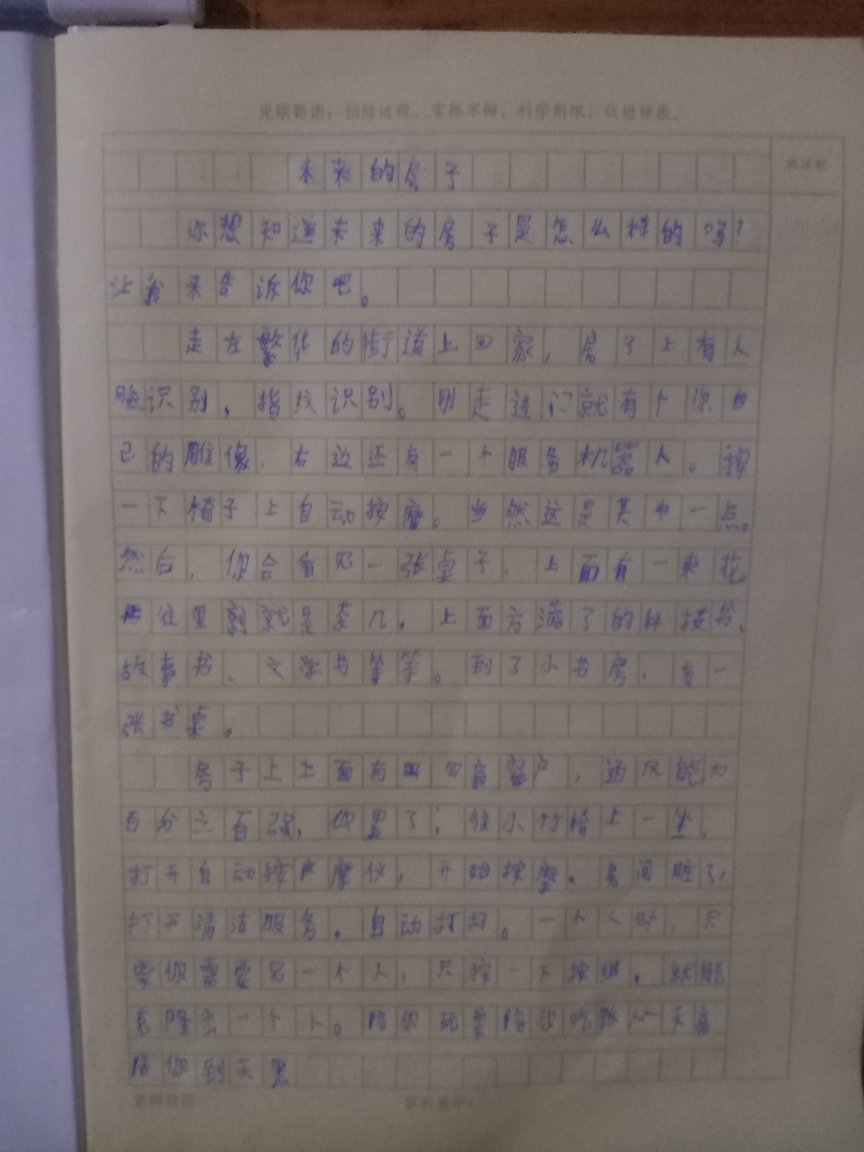 光明寄语：预防近视，常练不懈，科学用眼，促进健康。
批注栏
未来的房子
你想知道未来的房子是怎么样的吗？
让我来告诉你吧。
走在繁华的街道上回家，房子上有人
脸识别，指纹识别。刚走进门就有个你自
己的雕像，右边还有一个服务机器人。按
一下椅子上自动按摩。当然这是其中一点。
然后，你会看见一张桌子，上面有一束花。
往里就是茶几，上面满了的科技书、
故事书、文学书等等。到了小书房，有一
张书桌。
房子上上面有四窗户，通风能力
百分之百强，你累了，往小竹椅上一坐，
打开自动按摩仪，开始按摩。房间脏了，
打开清洁服务，自动打扫。一个人时，只
要你需要另一个人，只按一下按钮，就能
克隆出一个人。陪你玩耍陪你吃从天亮
陪你到天黑
老师寄语：
家长签字：